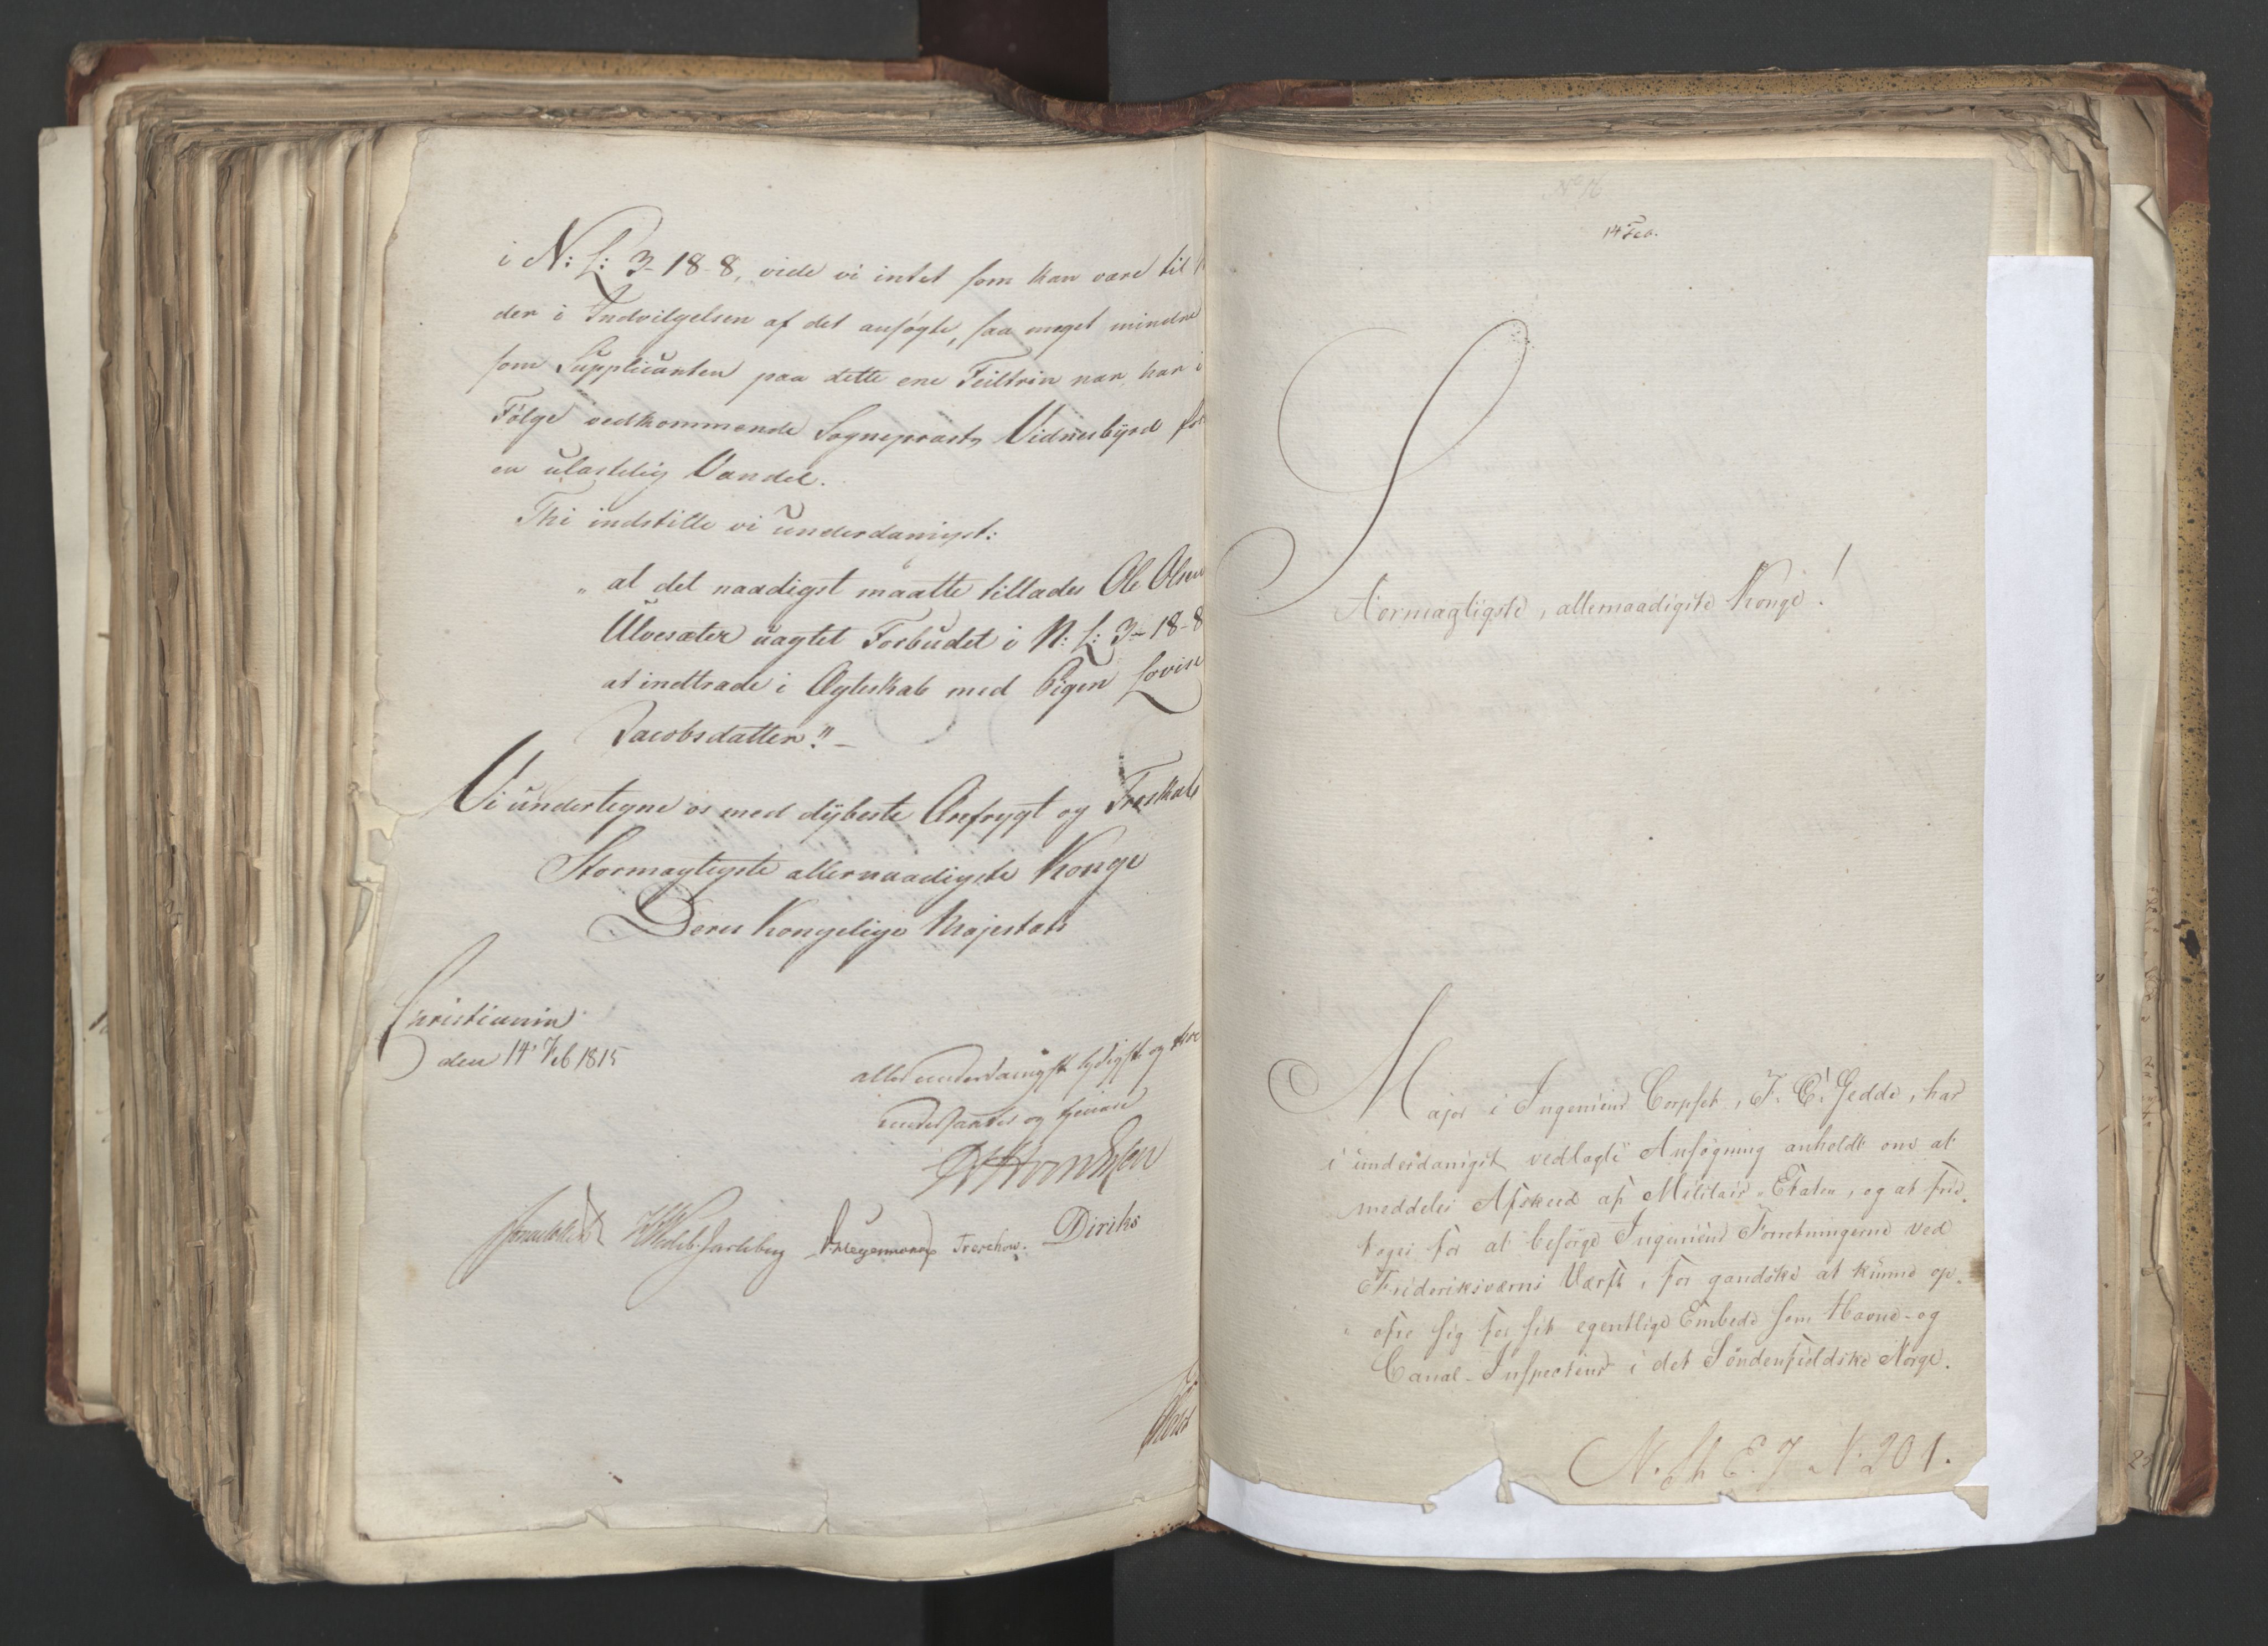 i N: L: 3-18-8, vide vi intet som kan være til
der i Indvilgelsen af det ansøgte, saa meget mindre
som Supplicanten paa dette ene Feiltrin nær, har i
Følge vedkommende Sognepræsts Vidnesbyrd
en ulastelig Vandel.
Thi indstille vi underdanigst:
„ at det naadigst maatte tillades Ole Olsen
Ulvesæter uagtet Forbudet i N: L: 3-18-8
at indtræde i Ægteskab med Pigen Lovise
Jacobsdatter." –
Vi undertegne os med dybeste Ærefrygt og Troskab
Stormægtigste allernaadigste Konge
Deres Kongelige Majestæts
Christiania
den 14' Feb 1815
allerunderdanigst lydigst og
undersaatter og tjenere
Treschow. Diriks
No 16
14 Feb.
Stormægtigste, allernaadigste Konge!
Major i Ingenieur Corpset, F. C. Gedde, har
i underdanigst vedlagte Ansøgning anholdt om at
meddeles Afskeed af Militair-Etaten, og at fri-
tages for at besørge Ingenieur Forretningerne ved
Frideriksværns Værft, for gandske at kunne op-
ofre sig for sit egentlige Embede som Havne- og
Canal-Inspecteur i det Søndenfieldske Norge.
N. 201.